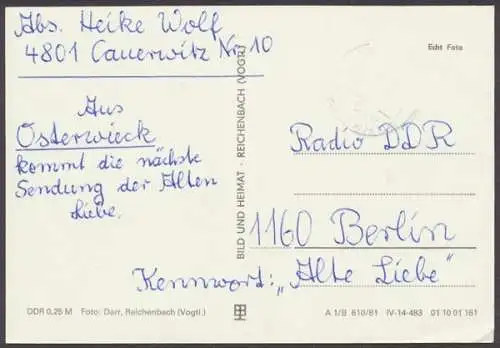 Abs. Heike Wolf
4801 Cauerwitz Nr. 10
Echt Foto
Aus
Osterwieck
kommt die nächste
Sendung der Alten
Liebe.
BILD UND HEIMAT · REICHENBACH (VOGTL.)
Radio DDR
1160 Berlin
Kennwort: „Alte Liebe"
DDR 0,25 M Foto: Darr, Reichenbach (Vogtl.)
A 1/B 610/81 IV-14-483 01 10 01 161